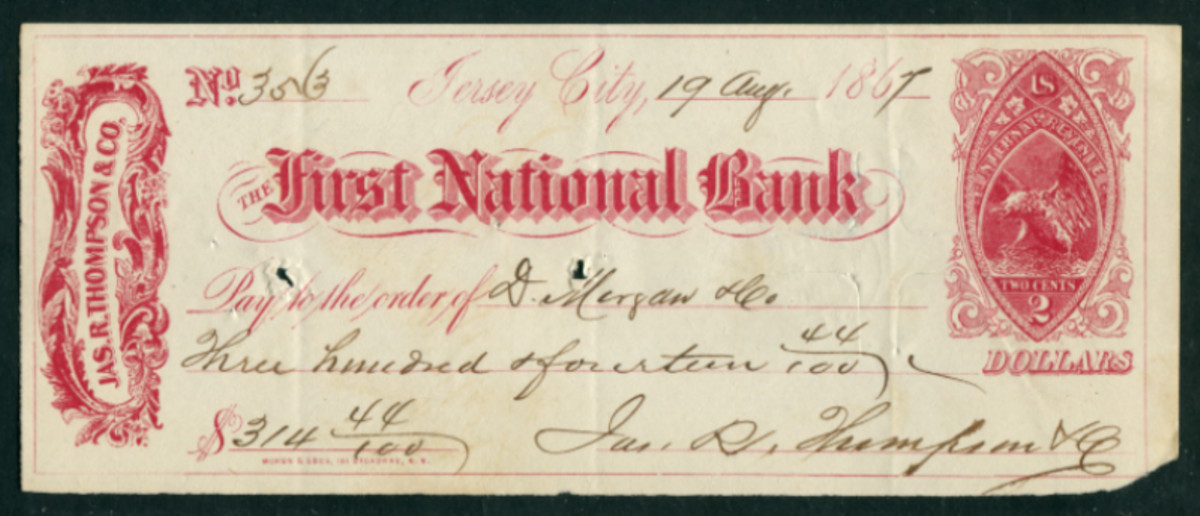 JAS. R. THOMPSON & CO.
No. 356 Jersey City, 19 Aug. 1867
THE First National Bank
Pay to the order of D. Morgan & Co
Three hundred & fourteen 44/100 DOLLARS
$ 314 44/100 Jas. R. Thompson & Co
U S
INTERNAL REVENUE
TWO CENTS
2